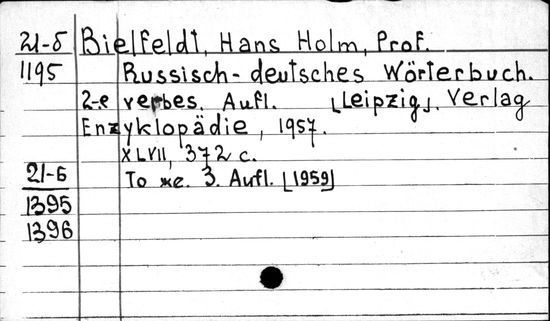 21-б Bielfeldt, Hans Holm, Prof.
1195 Russisch-deutsches Wörterbuch.
2-e verbes. Aufl. [Leipzig], Verlag
Enzyklopädie, 1957.
XLVII, 372 c.
21-Б То же. 3. Aufl. [1959]
1395
1396